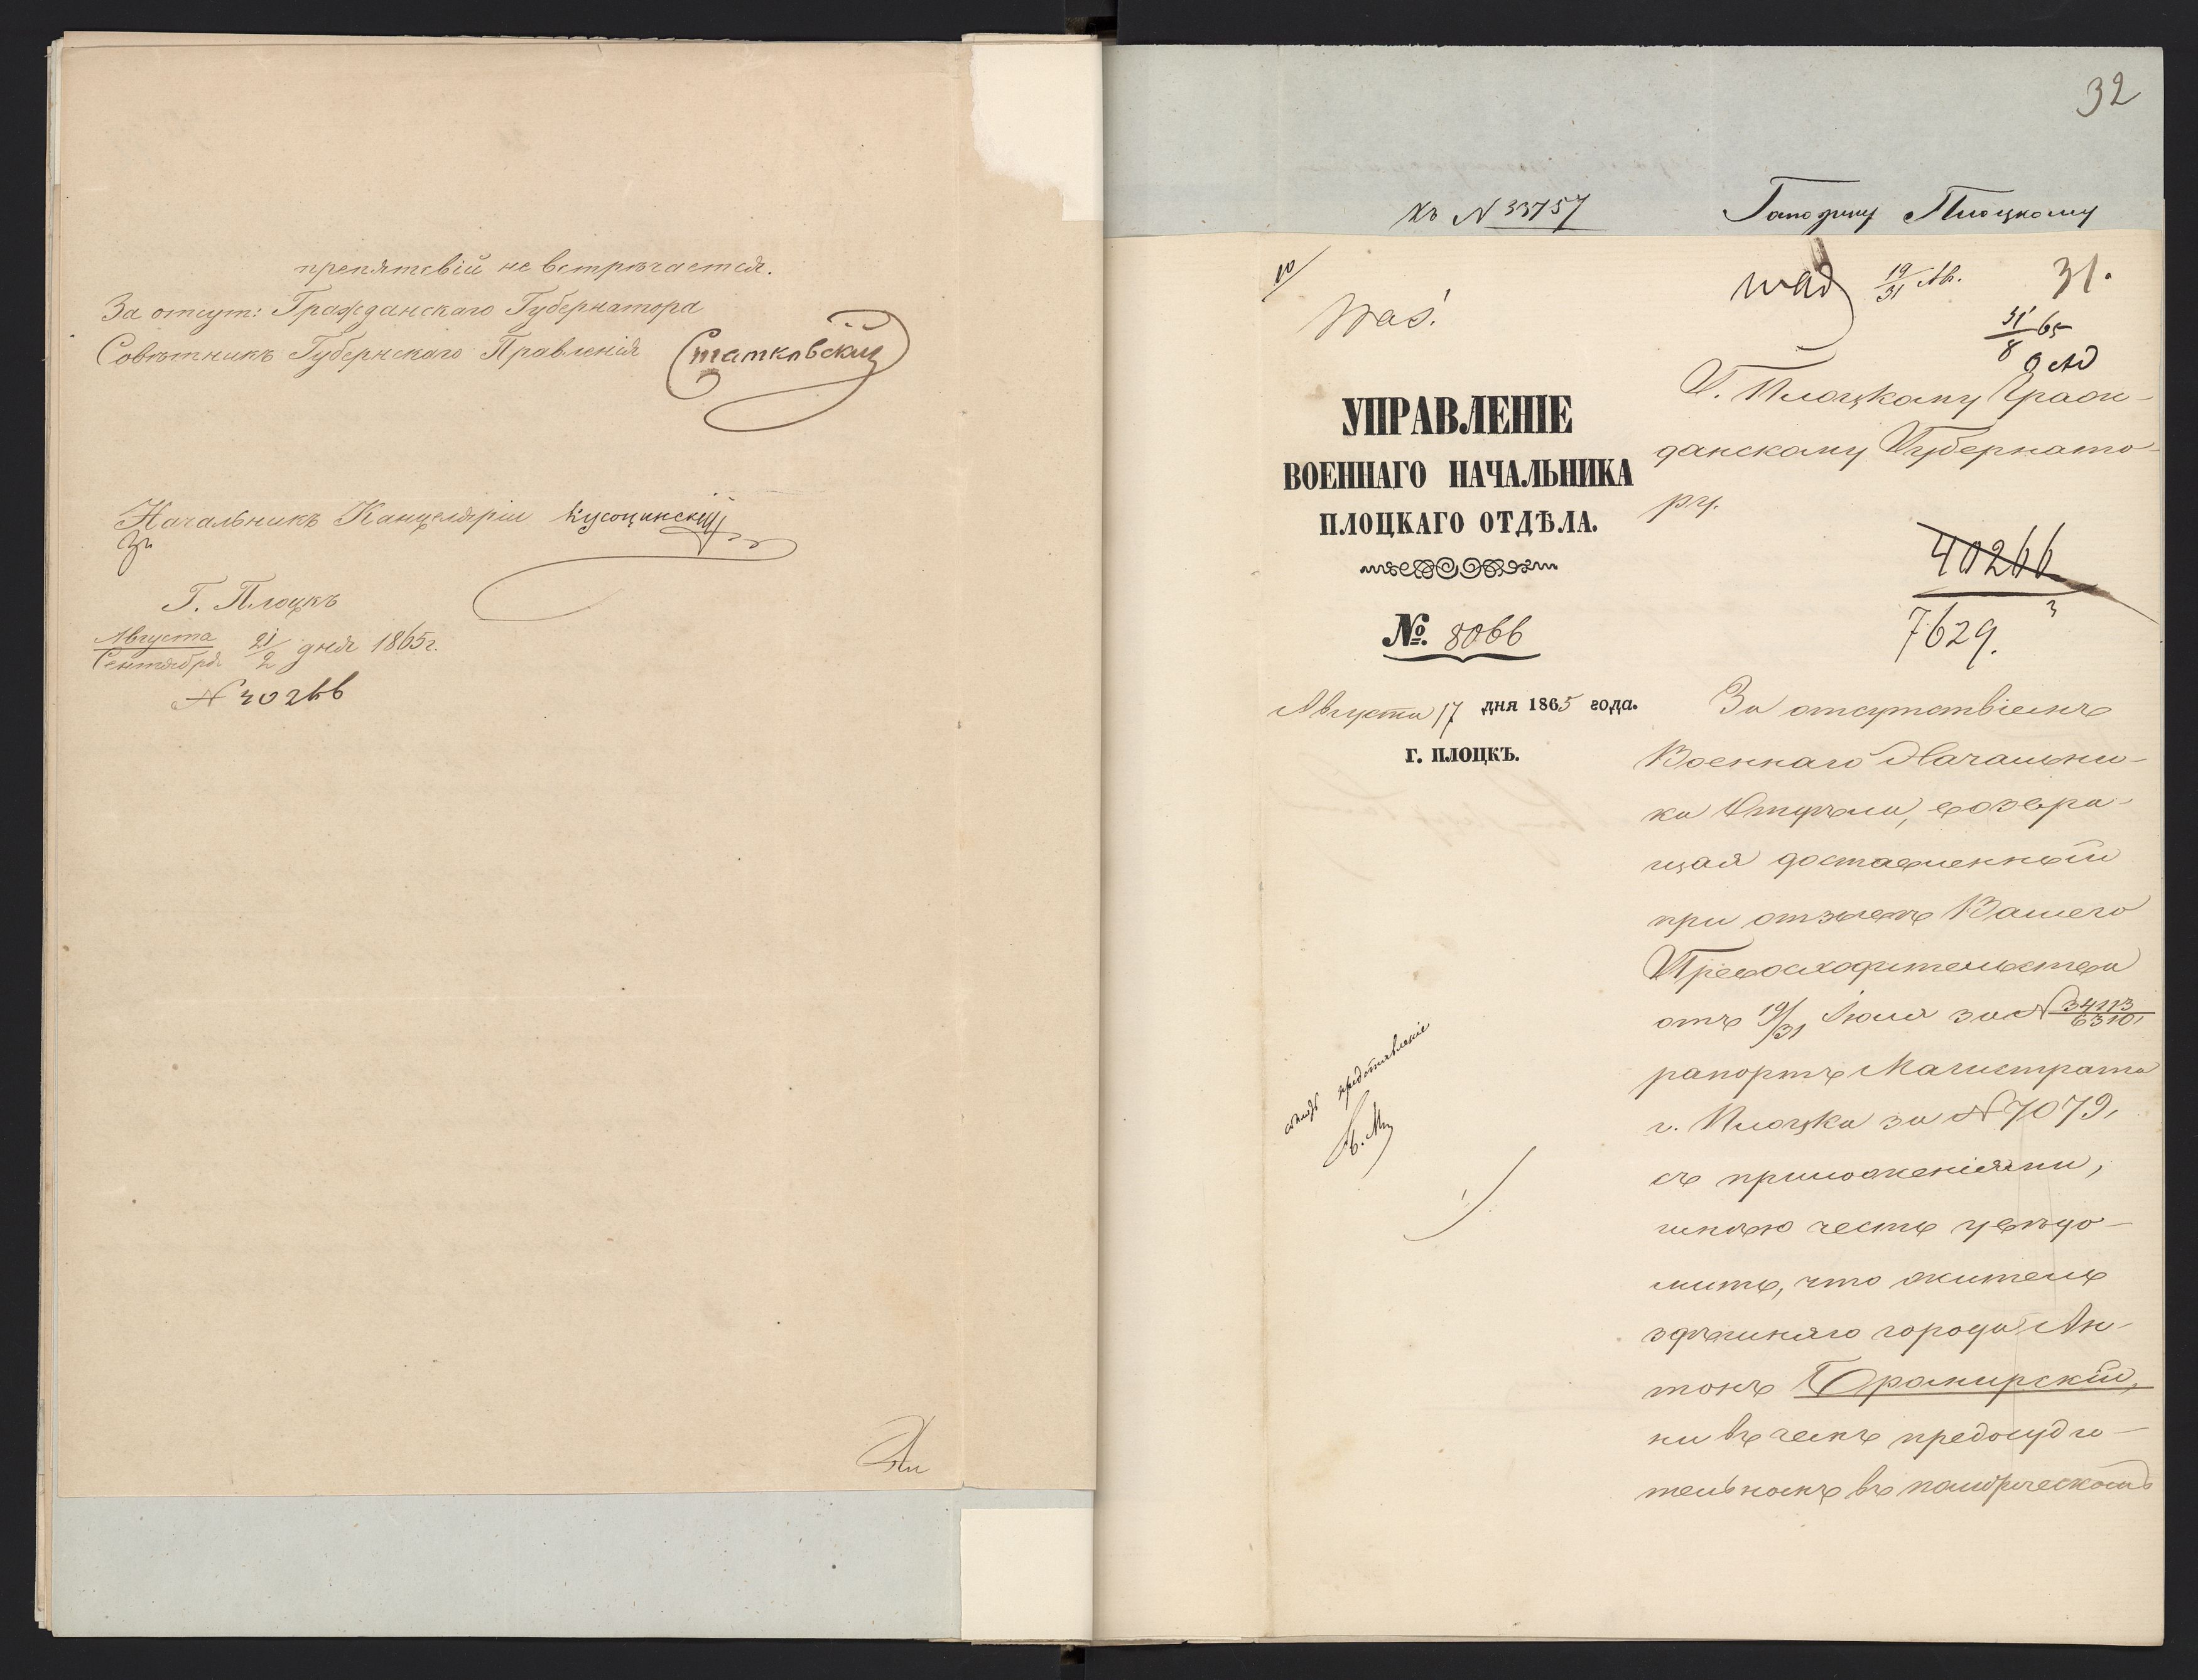 препятсвій не встрѣчается.
За отсут: Гражданскаго Губернатора
Совѣтникъ Губернскаго Правленія Статковскій
Начальникъ Канцеляріи Кусоцинскій
Г. Плоцкъ
Августа 21
Сентября 2 дня 1865 г.
N 40266
32
къ N 33757
Господину Плоцкому
31.
19/31 Ав.
31/8 65
УПРАВЛЕНІЕ
ВОЕННАГО НАЧАЛЬНИКА
ПЛОЦКАГО ОТДѢЛА.
№ 8066
Августа 17 дня 1865 года.
г. ПЛОЦКЪ.
Г. Плоцкому Граж-
данскому Губернато-
ру.
40266
7629.
За отсутствіемъ
Военнаго Начальни-
ка Отдѣла, возвра-
щая доставленный
при отзывѣ Вашего
Превосходительства
отъ 19/31 Іюля за N 34113/6310,
рапортъ Магистрата
г. Плоцка за N 7079,
съ приложеніями,
имѣю честь увѣдо-
мить, что житель
здѣшняго города Ан-
тонъ
ни въ чемъ предосуди-
тельномъ въ политическомъ